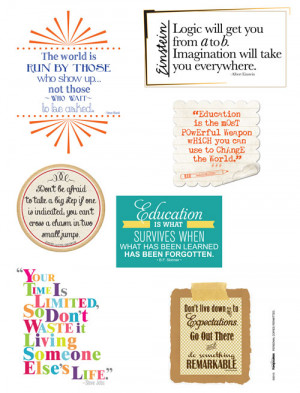 The world is
RUN BY THOSE
who show up...
not those
~ WHO WAIT~
to be asked.
Einstein
Logic will get you
from a to b.
Imagination will take
you everywhere.
-Albert Einstein
"Education
is the moST
POwerful Weapon
wHICH you can
use to ChaNGE
the World."
Don't be afraid
to take a big step if one
is indicated, you can't
cross a chasm in two
small jumps.
Education
IS WHAT
SURVIVES WHEN
WHAT HAS BEEN LEARNED
HAS BEEN FORGOTTEN.
~ B.F. Skinner ~
"YOUR
TIME IS
LIMITED,
SO DON'T
WASTE IT
LIVING
SOMEONE
ELSE'S LIFE."
-Steve Jobs
Don't live down to
Expectations.
Go Out There
and
do something
REMARKABLE